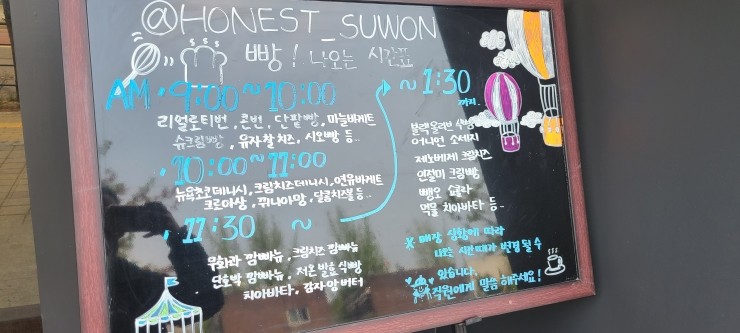 @HONEST_SUWON
빵! 나오는 시간표
AM · 9:00 ~ 10:00
리얼로티번, 콘번, 단팥빵, 마늘바게트
슈크림빵, 유자찰치즈, 시오빵 등..
· 10:00 ~ 11:00
뉴욕쵸코데니시, 크림치즈데니시, 연유바게트
크로아상, 퀴니아망, 달콩치즈볼 등..
· 11:30 ~
무화과 깜빠뉴, 크림치즈 깜빠뉴
단호박 깜빠뉴, 저온 발효 식빵
치아바타, 감자앙버터
~ 1:30
까지.
블랙올리브 식빵
어니언 소세지
제노베제 크림치즈
인절미 크림빵
빵오 쇼콜라
먹물 치아바타 등..
※ 매장 상황에 따라
나오는 시간대가 변경 될 수
있습니다.
직원에게 말씀 해주세요!